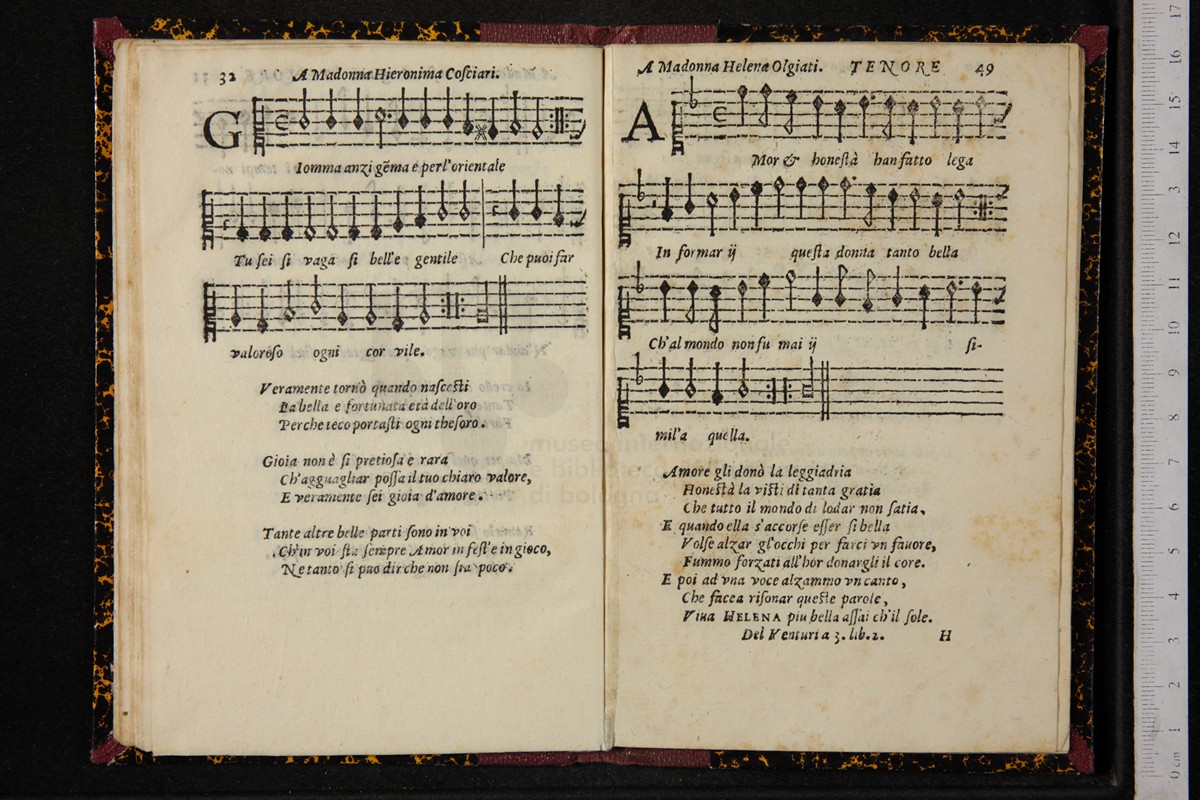 32 A Madonna Hieronima Cosciari.
GIomma anzi gẽma e perl'orientale
Tu sei si vaga si bell'e gentile Che puoi far
valoroso ogni cor vile.
Veramente tornò quando nascesti
La bella e fortunata età dell'oro
Perche teco portasti ogni thesoro.
Gioia non è si pretiosa e rara
Ch'agguagliar possa il tuo chiaro valore,
E veramente sei gioia d'amore.
Tante altre belle parti sono in voi
Ch'in voi sta sempre Amor in fest'e in gioco,
Ne tanto si puo dir che non sia poco.
A Madonna Helena Olgiati. TENORE 49
AMor & honestà han fatto lega
In formar ij questa donna tanto bella
Ch'al mondo non fu mai ij si-
mil'a quella.
Amore gli donò la leggiadria
Honestà la vistì di tanta gratia
Che tutto il mondo di lodar non satia,
E quando ella s'accorse esser sì bella
Volse alzar gl'occhi per farci vn fauore,
Fummo forzati all'hor donargli il core.
E poi ad vna voce alzammo vn canto,
Che facea risonar queste parole,
Viua HELENA piu bella assai ch'il sole.
Del Venturi a 3. lib. 2. H
museo internazionale
e biblioteca
di bologna
0 cm 1 2 3 4 5 6 7 8 9 10 11 12 13 14 15 16 17